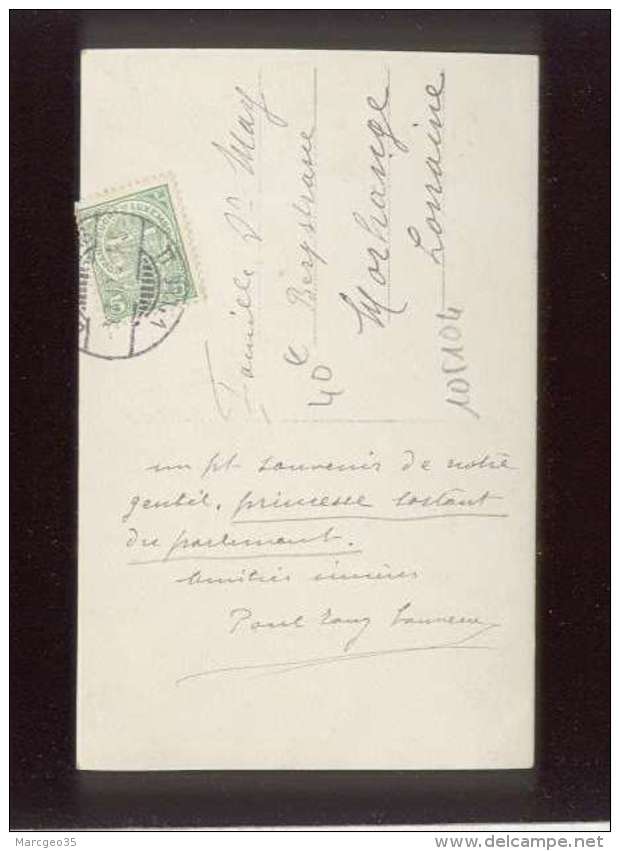 Famille Dr May
40 Bergstrasse
Morhange
Lorraine
105104
un pt souvenir de notre
gentil. princesse sortant
du parlement.
Amitiés sincères
Paul
5
Marcgeo35
www.delcampe.net